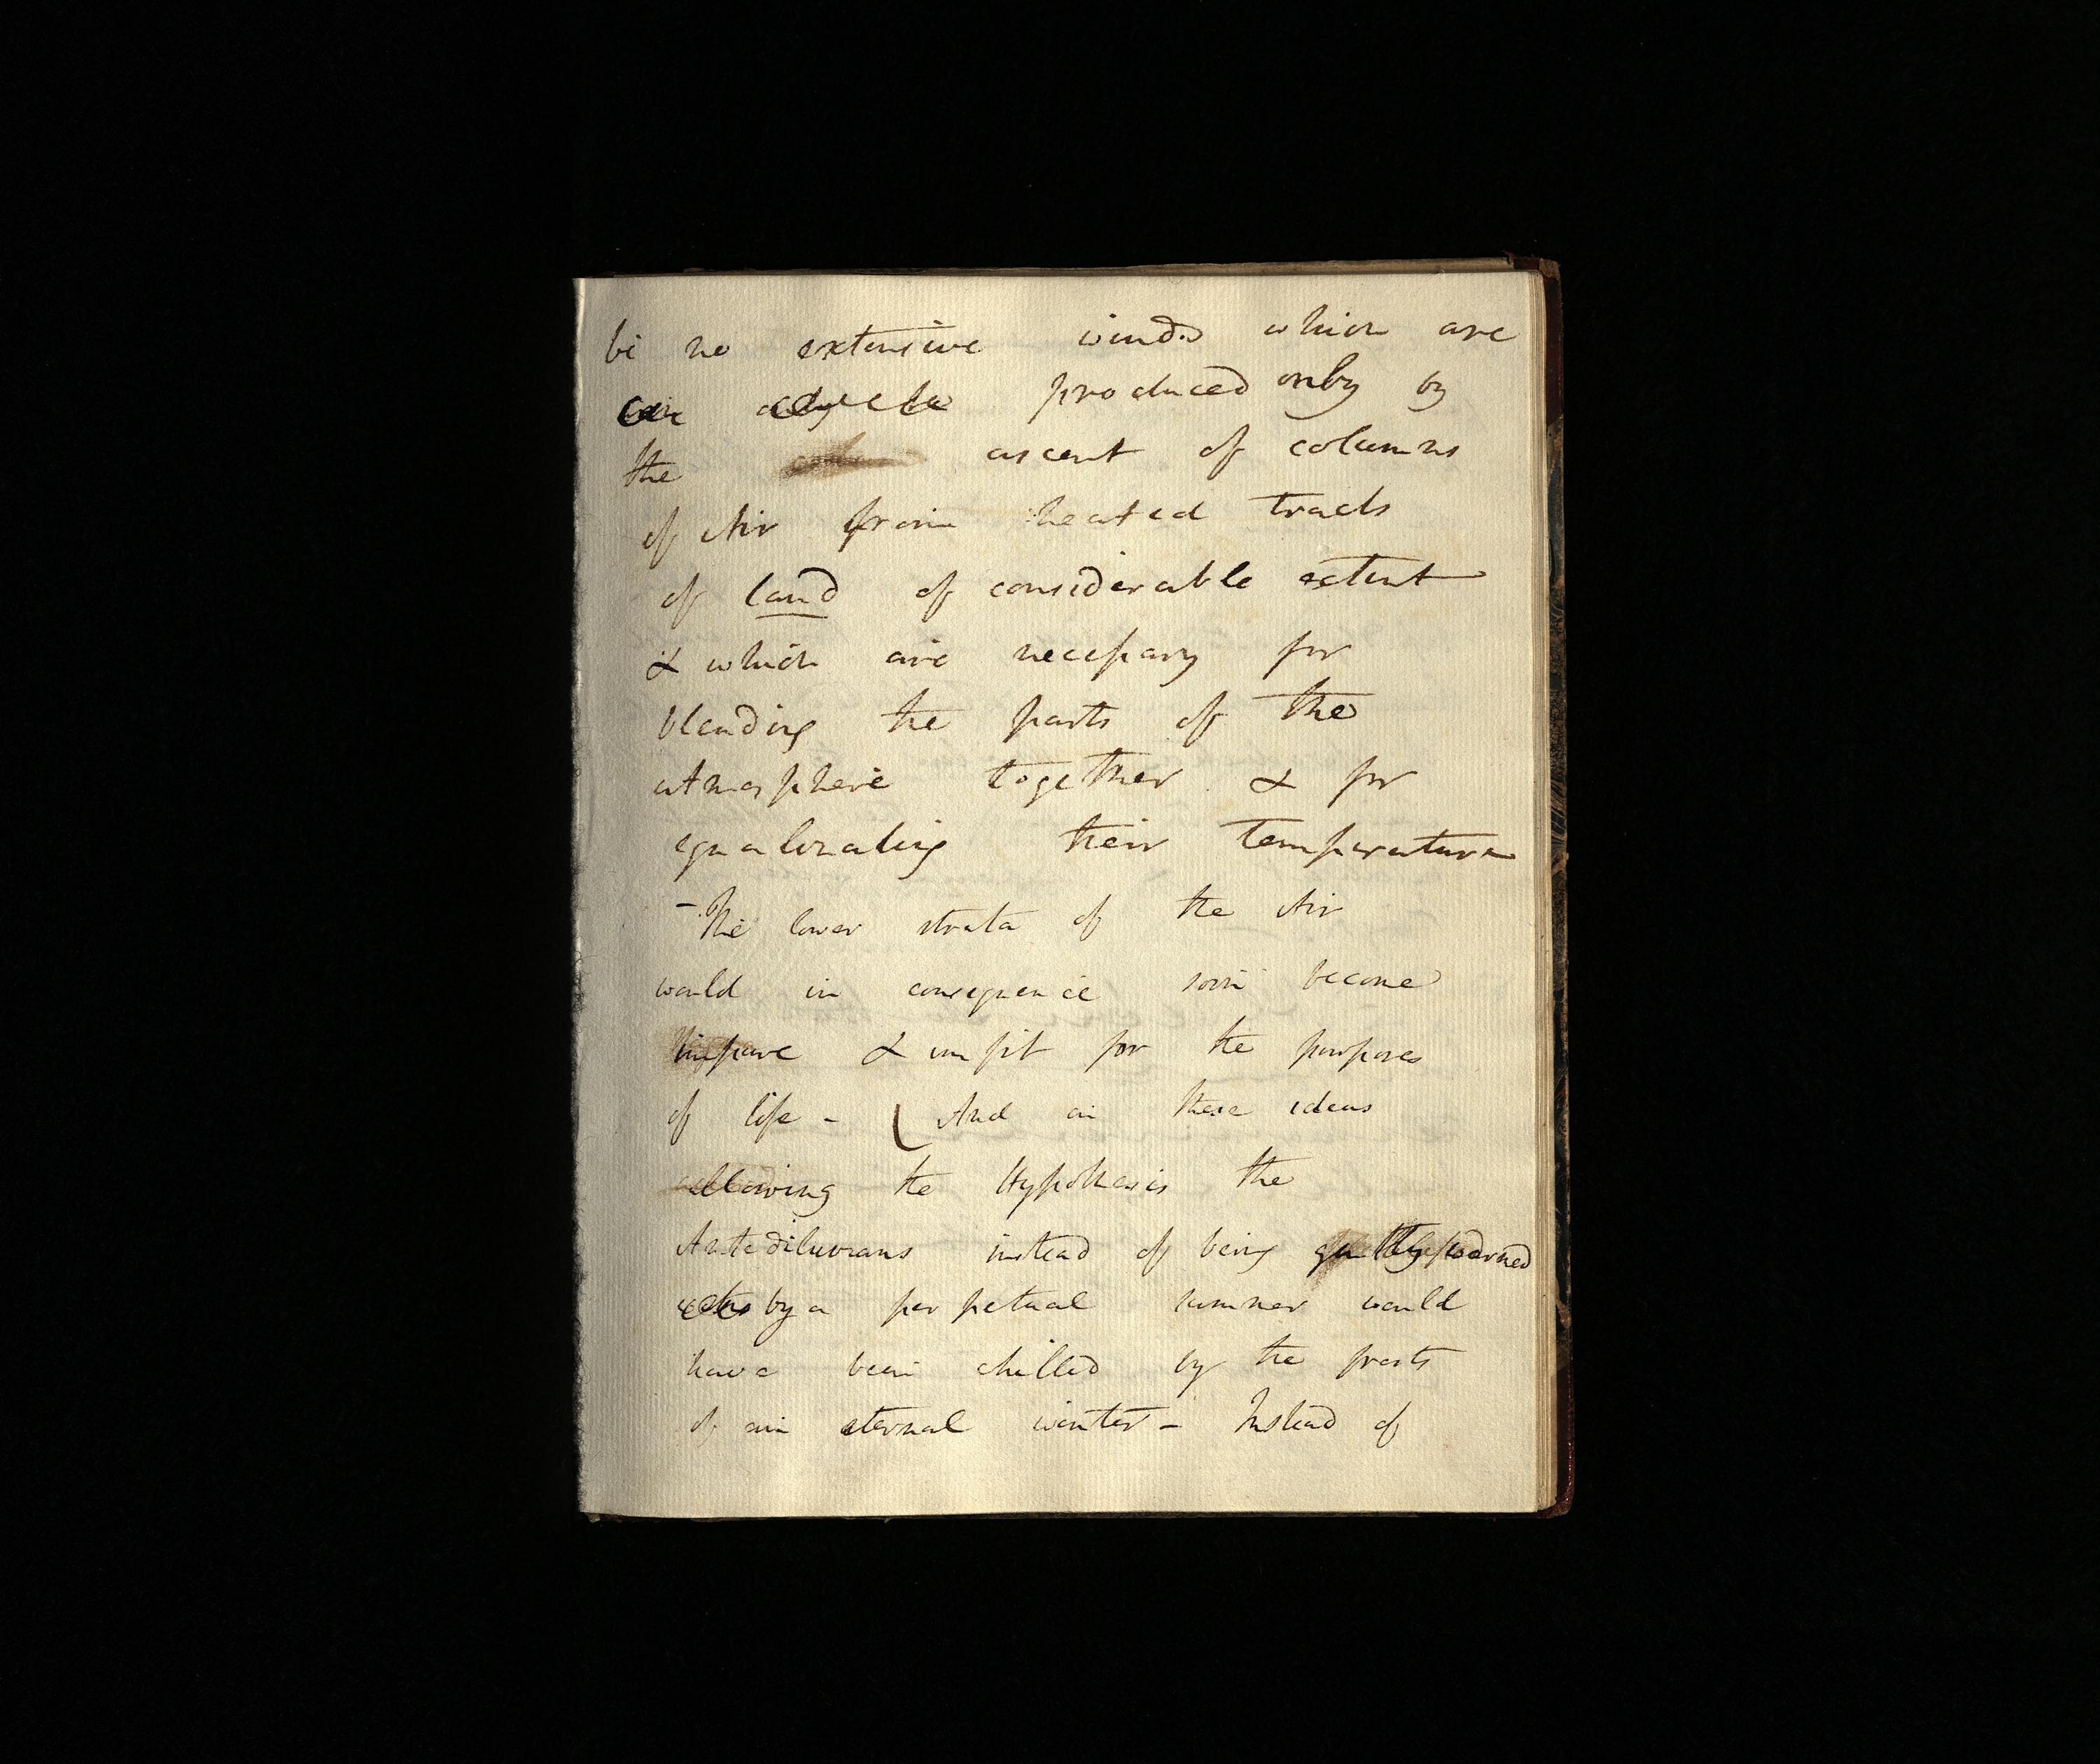 be no extensive winds which are
produced only by
the ascent of columns
of Air from heated tracts
of land of considerable extent
& which are necessary for
blending the parts of the
atmosphere together & for
equalizating their temperature
- The lower strata of the Air
would in consequence soon become
impure & unfit for the purposes
of life - ( And on these ideas
allowing the Hypothesis the
Antediluvians instead of being gently warmed
by a perpetual summer would
have been chilled by the frosts
of an eternal winter - Instead of